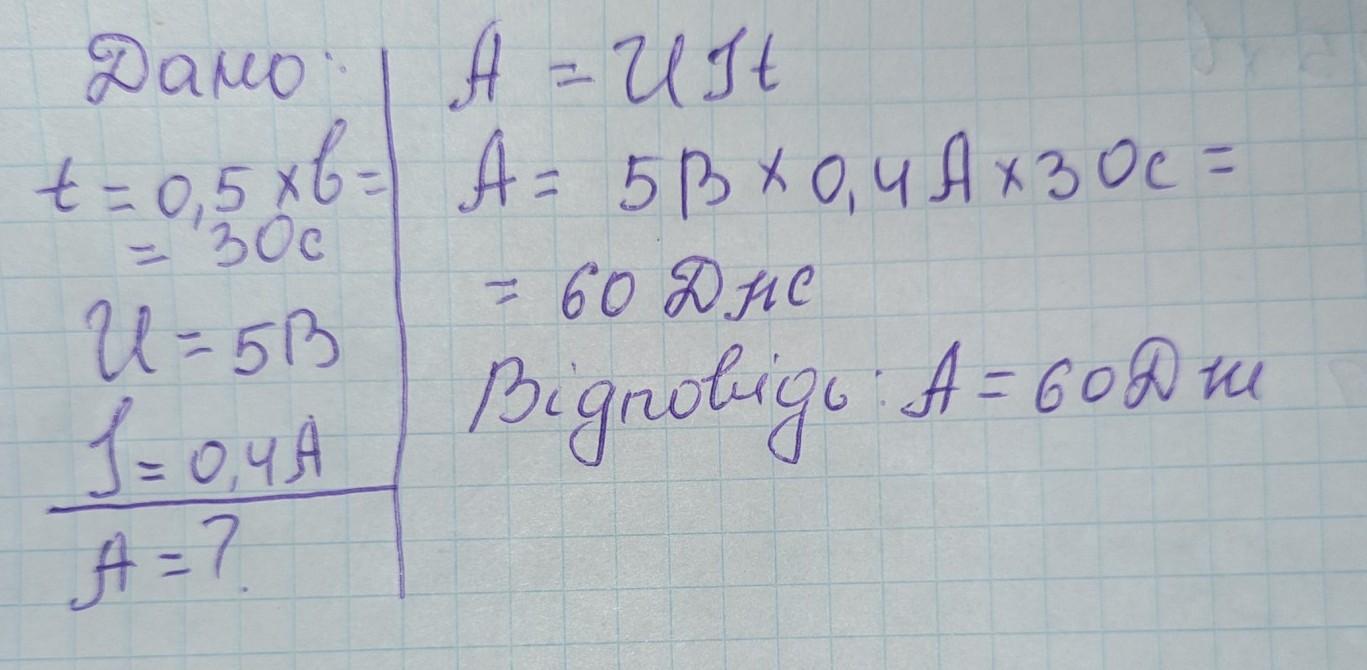 Дано:
t = 0,5 хв =
= 30с
U = 5В
I = 0,4А
А = ?
А = UIt
А = 5В × 0,4А × 30с =
= 60 Дж
Відповідь: А = 60 Дж